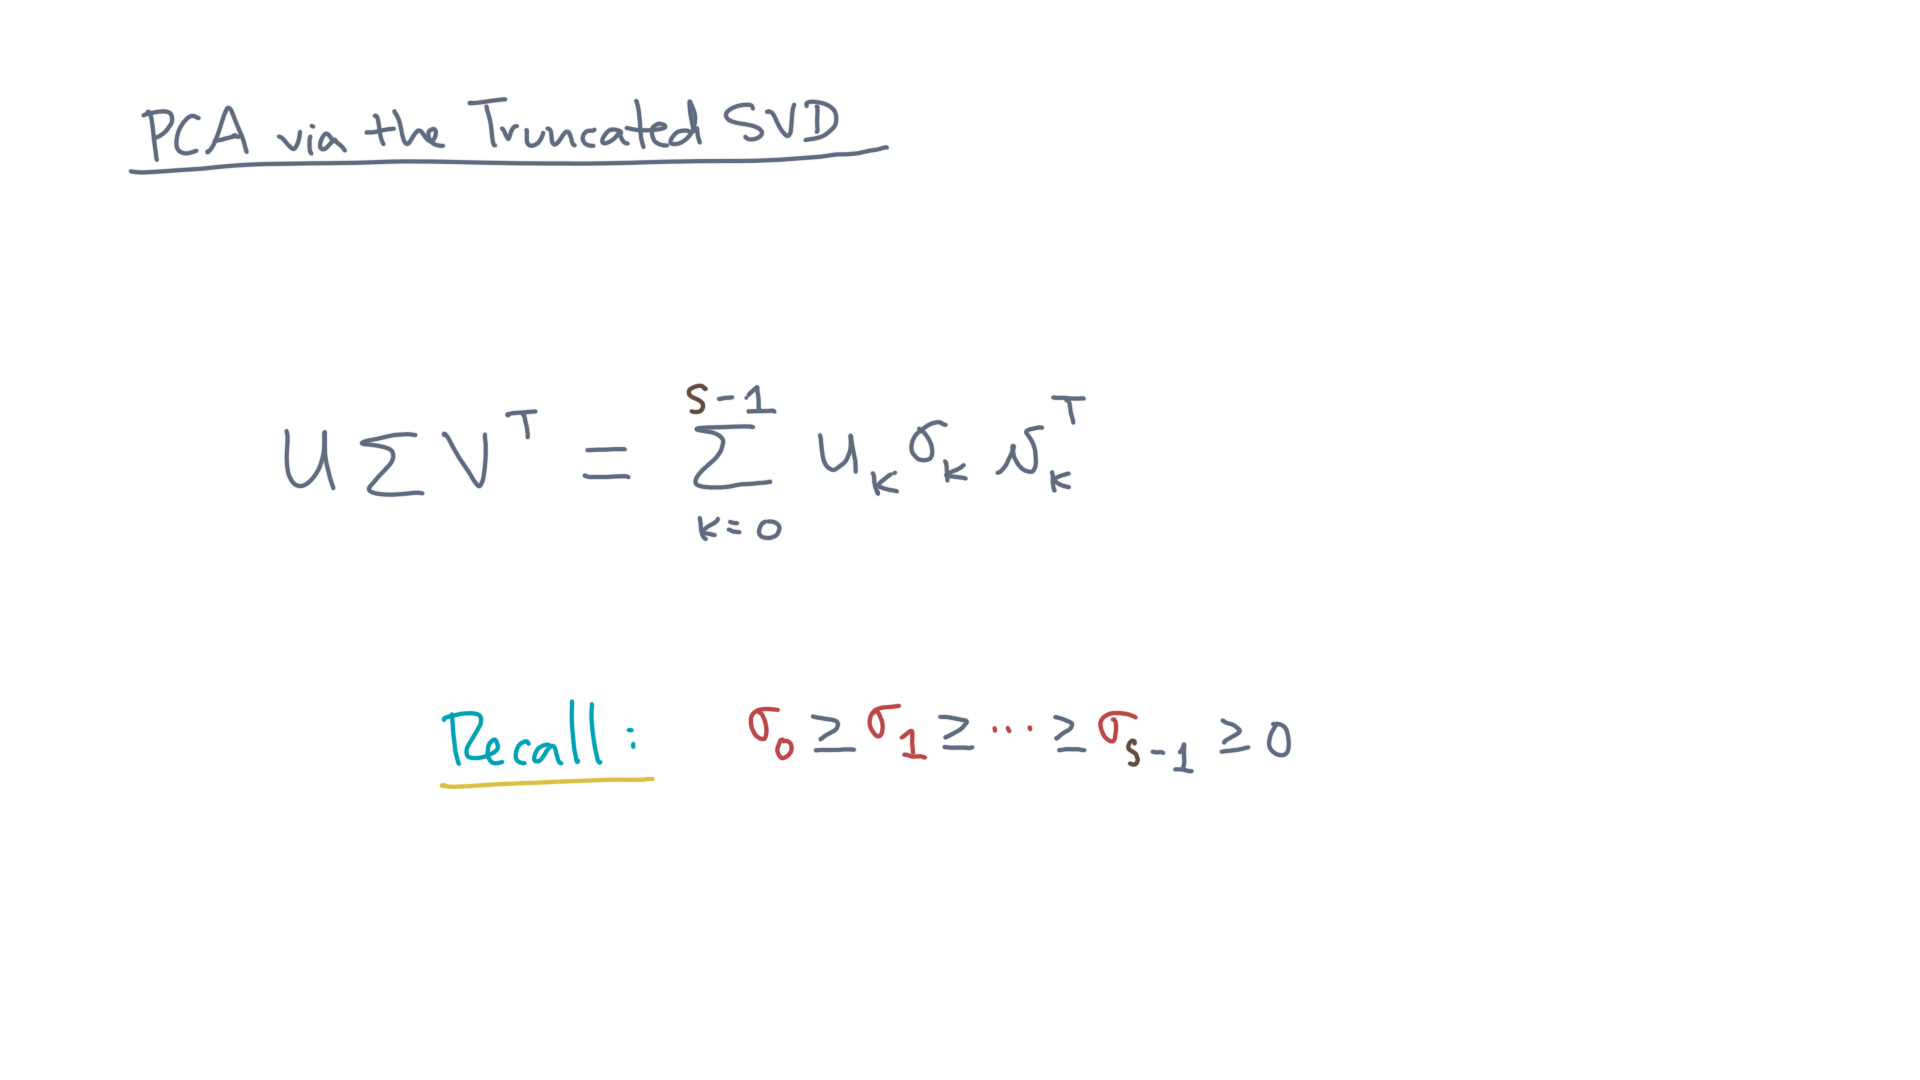 PCA via the Truncated SVD
U Σ V^T = Σ_{k=0}^{s-1} u_k σ_k v_k^T
Recall: σ_0 ≥ σ_1 ≥ ⋯ ≥ σ_{s-1} ≥ 0